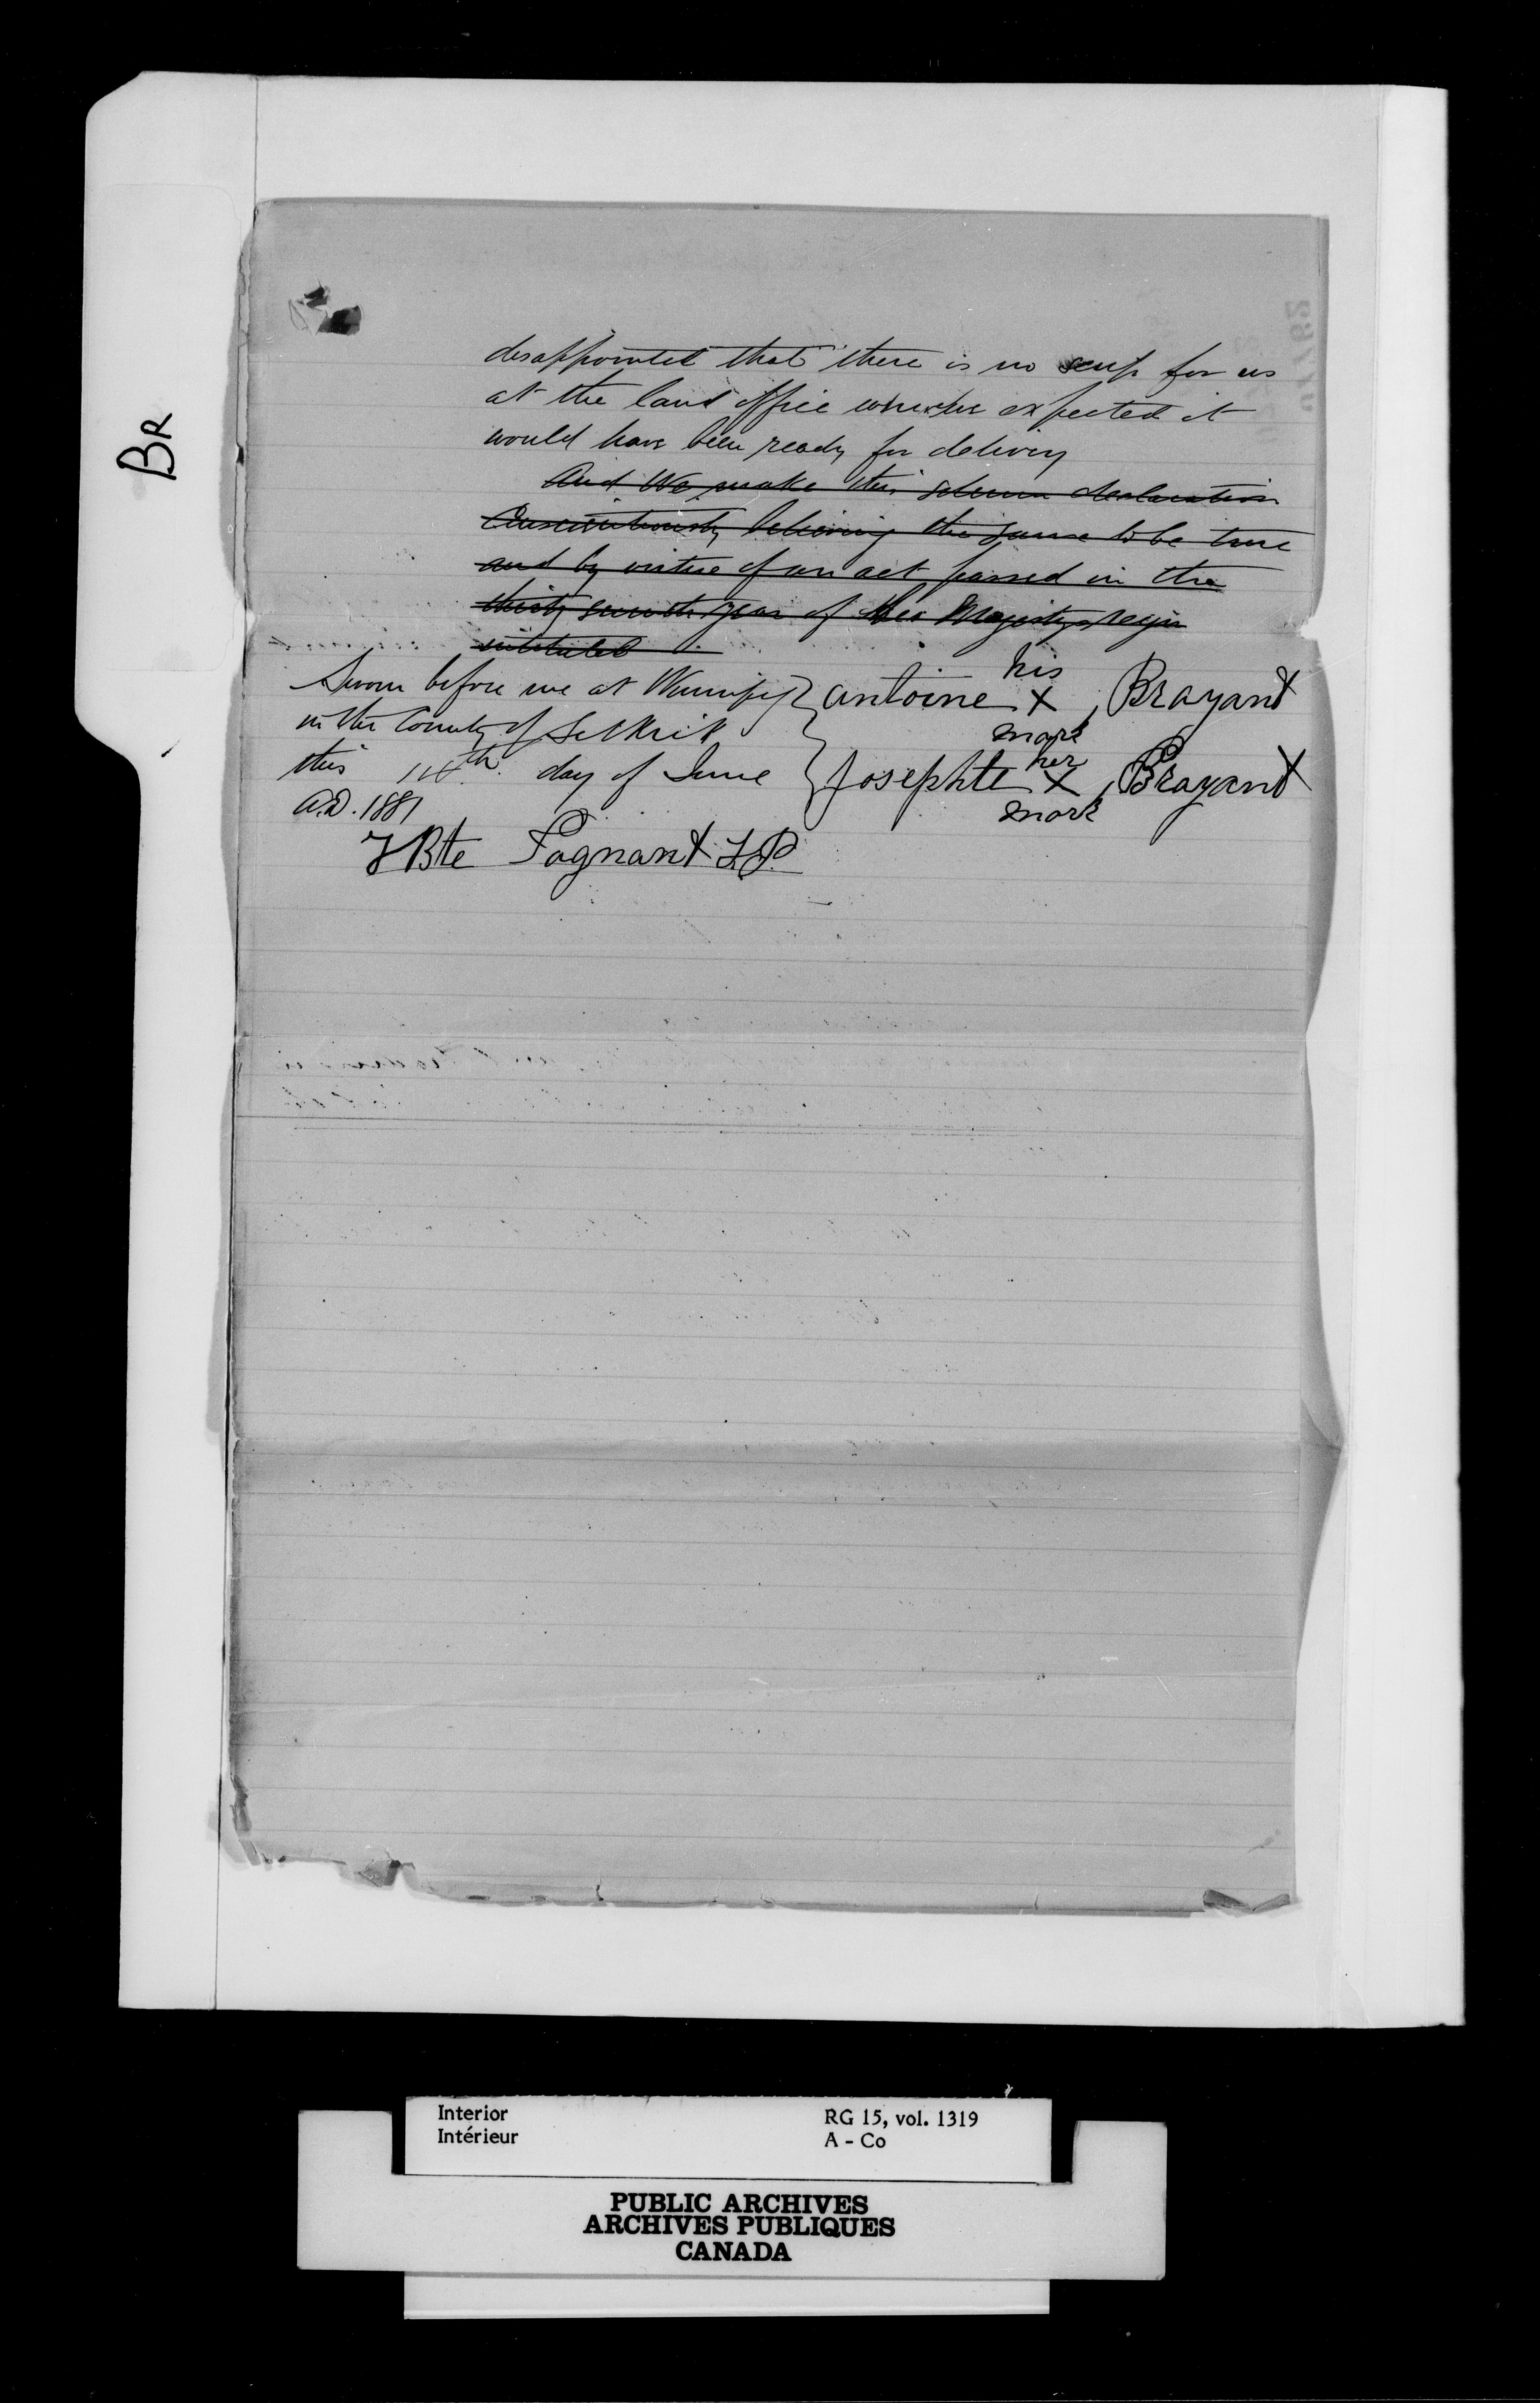 BR
disappointed that there is no scrip for us
at the land office where we expected it
would have been ready for delivery
And We make this solemn declaration
Conscientiously believing the same to be true
and by virtue of an act passed in the
thirty seventh year of Her Majestys reign
intituled
Sworn before me at Winnipeg
in the County of Selkirk
this 14th day of June
A.D. 1881
his
antoine X Brayant
mark
her
Josephte X Brayant
mark
J Bte Pagnant J.P.
Interior
Intérieur
RG 15, vol. 1319
A - Co
PUBLIC ARCHIVES
ARCHIVES PUBLIQUES
CANADA